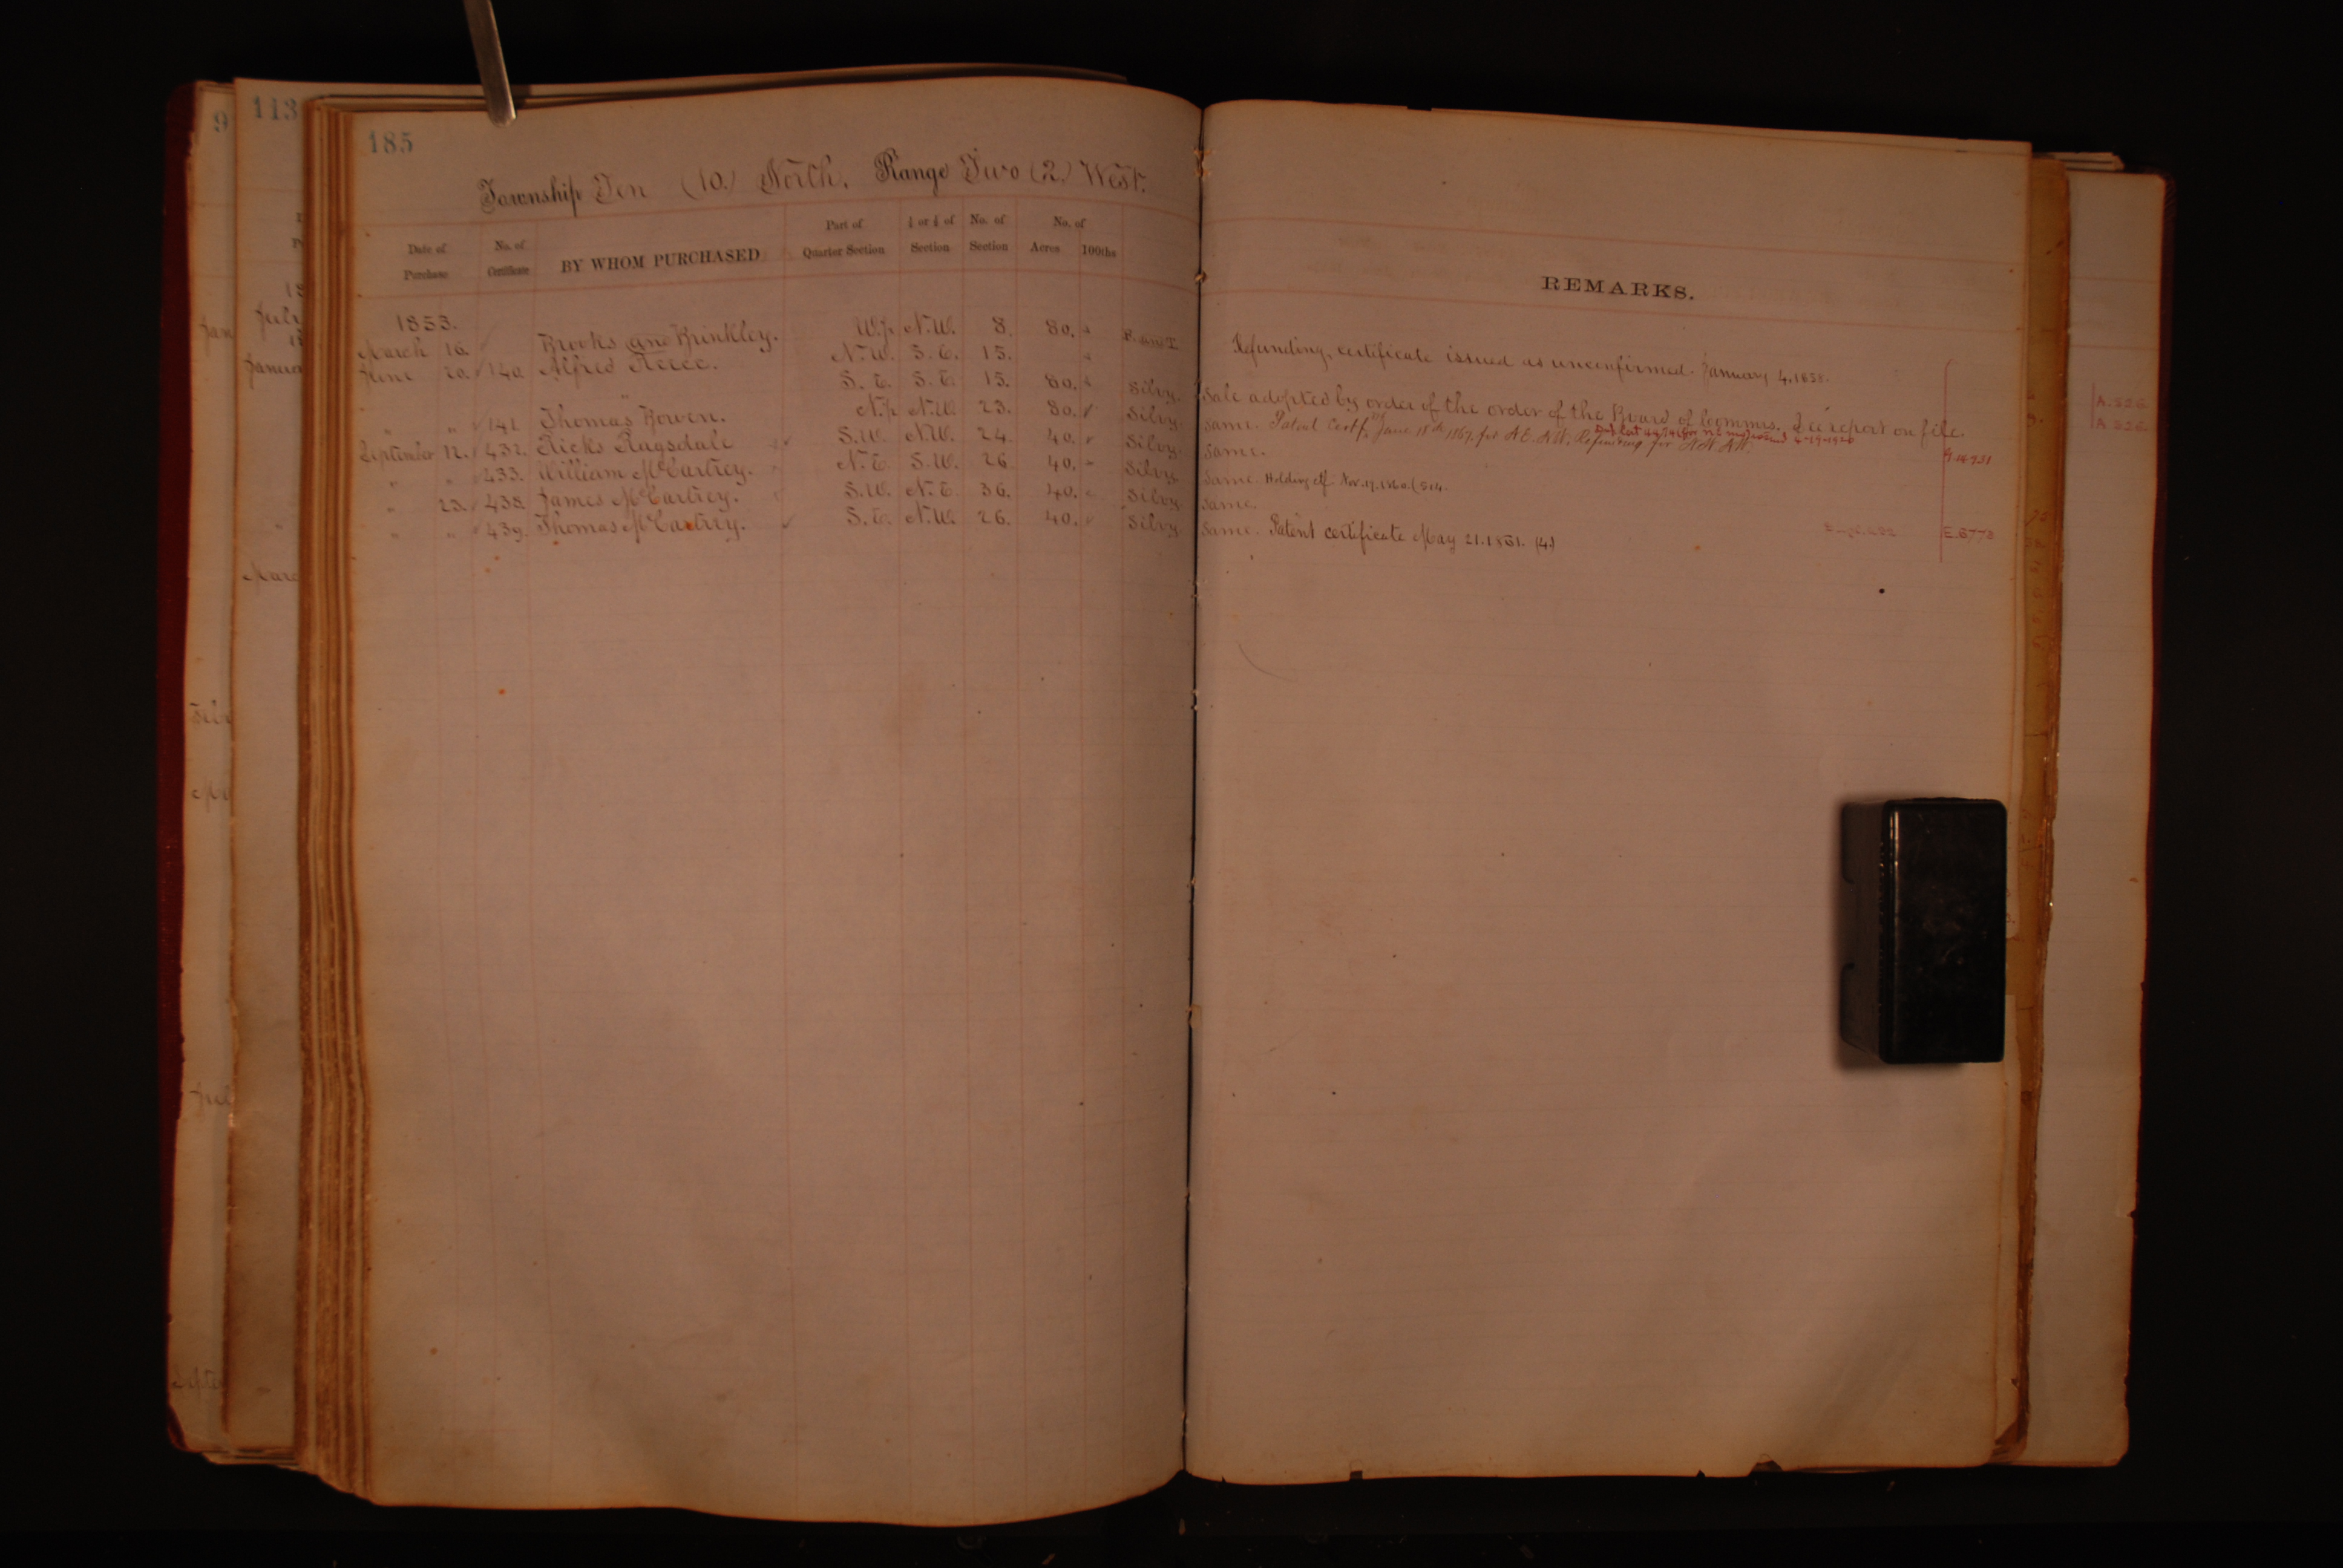 9
113
185
Township Ten (10.) North. Range Two (2.) West.
Date of Purchase No. of Certificate BY WHOM PURCHASED Part of Quarter Section ½ or ¼ of Section No. of Section No. of Acres 100ths
REMARKS.
1853.
March 16. Brooks and Brinkley. W.p N.W. 8. 80. B. and T. Refunding, certificate issued as unconfirmed. January 4. 1858.
June 20. 140 Alfred Reece. N.W. S.E. 15.
" S.E. S.E. 15. 80. Silvy. Sale adopted by order of the order of the Board of Commrs. See report on file.
" " 141 Thomas Bowen. N.p N.W. 23. 80. Silvy. Same. Patent Certf. June 18th 1867. for
September 12. 432. Ricks Ragsdale S.W. N.W. 24. 40. Silvy. Same. G.14931
" " 433. William McCartrey. N.E. S.W. 26 40. Silvy. Same. Holding ctf Nov. 17. 1860.
" 23. 438. James McCartrey. S.W. N.E. 36. 40. Silvy. Same.
" " 439. Thomas McCartrey. S.E. N.W. 26. 40. Silvy. Same. Patent certificate May 21. 1861. (4.) E.6778
A.326
A.326